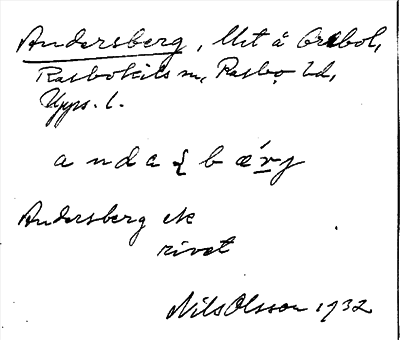 Andersberg, Ut å Örbol,
Rasbokils sn, Rasbo hd,
Upps. l.
a nda { b ǽrj
Andersberg ek
rivet
Nils Olsson 1932